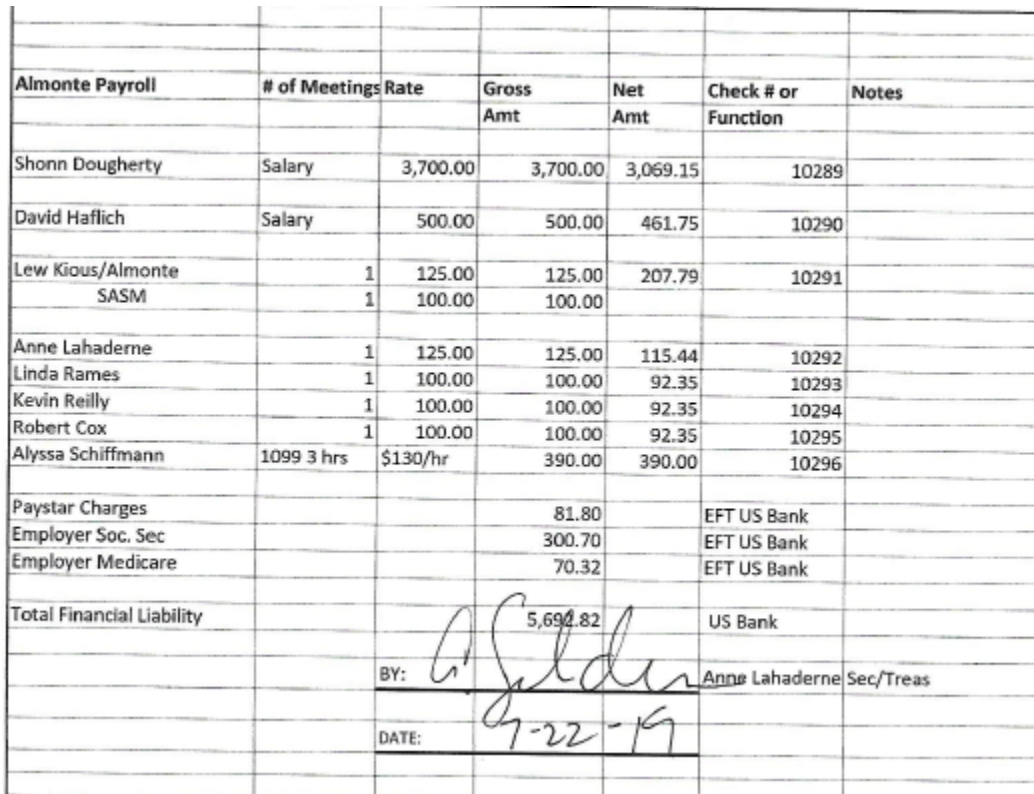 Almonte Payroll # of Meetings Rate Gross Net Check # or Notes
Amt Amt Function
Shonn Dougherty Salary 3,700.00 3,700.00 3,069.15 10289
David Haflich Salary 500.00 500.00 461.75 10290
Lew Kious/Almonte 1 125.00 125.00 207.79 10291
SASM 1 100.00 100.00
Anne Lahaderne 1 125.00 125.00 115.44 10292
Linda Rames 1 100.00 100.00 92.35 10293
Kevin Reilly 1 100.00 100.00 92.35 10294
Robert Cox 1 100.00 100.00 92.35 10295
Alyssa Schiffmann 1099 3 hrs $130/hr 390.00 390.00 10296
Paystar Charges 81.80 EFT US Bank
Employer Soc. Sec 300.70 EFT US Bank
Employer Medicare 70.32 EFT US Bank
Total Financial Liability 5,692.82 US Bank
BY: Anne Lahaderne Sec/Treas
DATE: 7-22-19